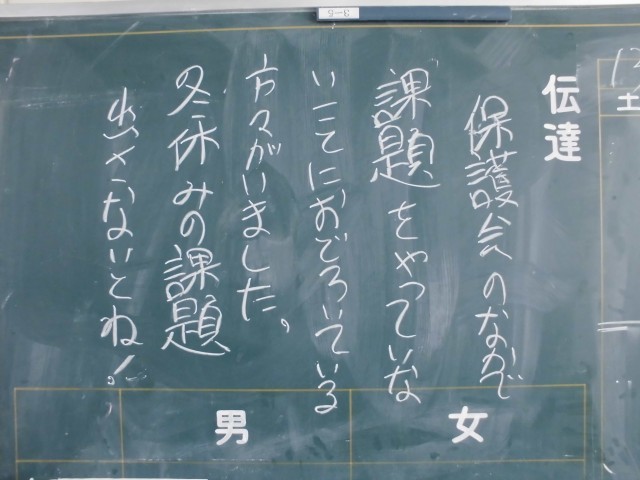 土
伝達
保護会のなかで
課題をやっていな
いことにおどろいている
方々がいました。
冬休みの課題
出さないとね!
女
男
3-5